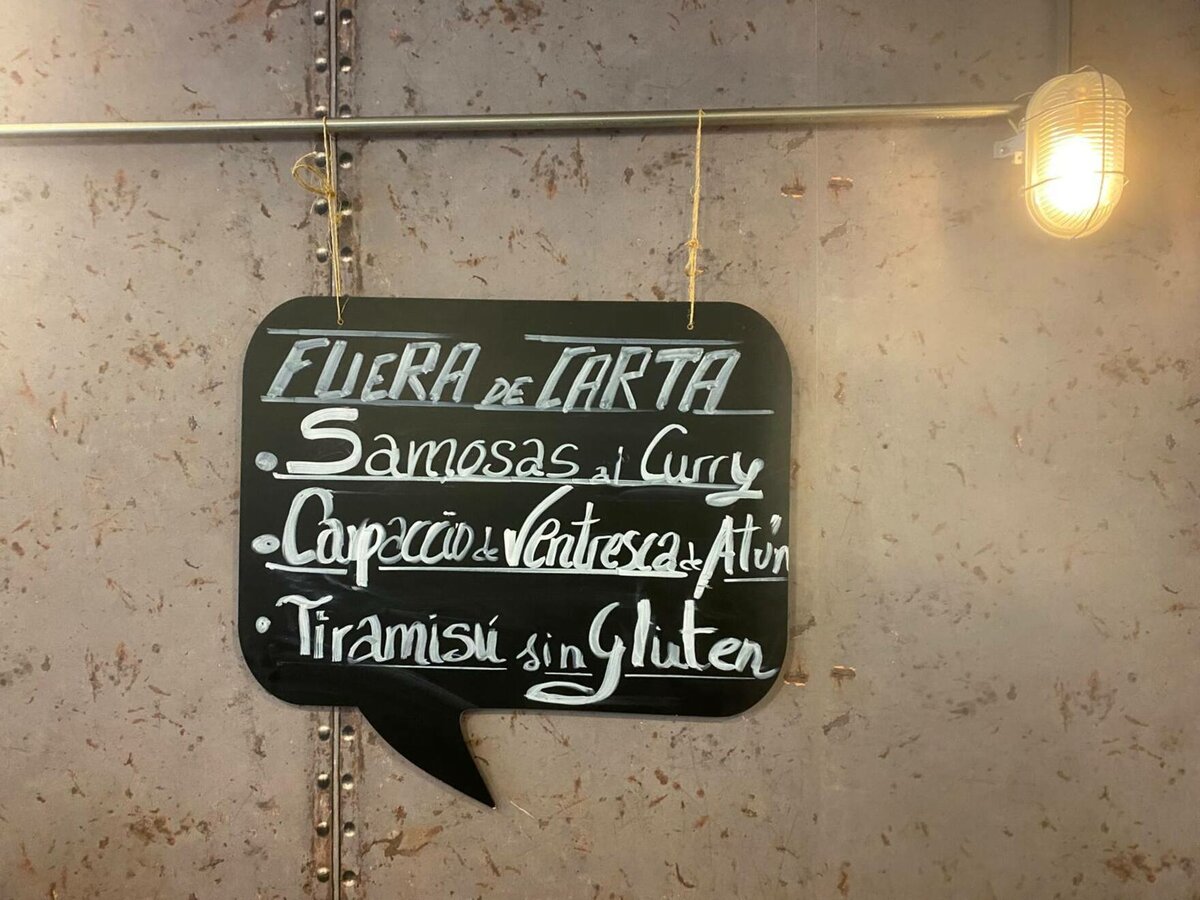 FUERA DE CARTA
• Samosas al Curry
• Carpaccio de Ventresca de Atún
• Tiramisú sin gluten